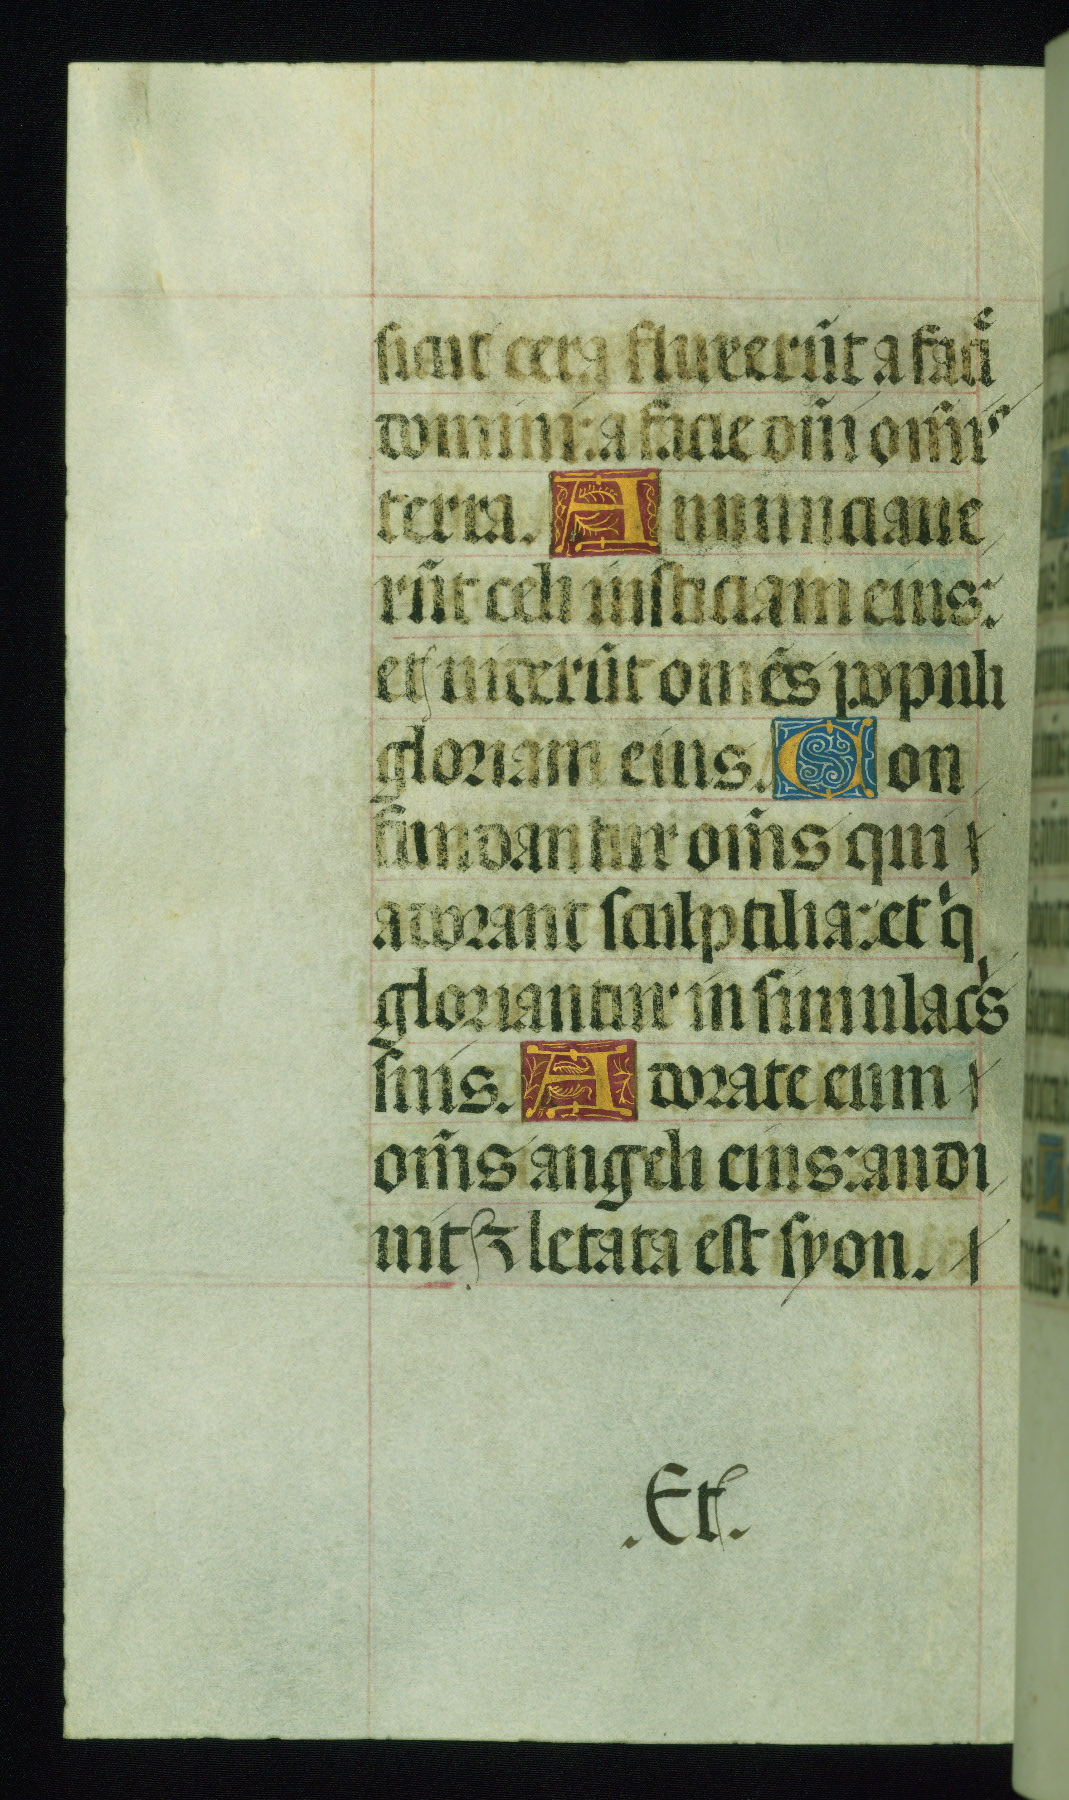 sicut cera fluxerūt a faciͤ
domini: a facie dn̄i om̄is
terra. Annunciaue
rūt celi iusticiam eius:
et uiderūt omēs populi
gloriam eius. Con
fundantur om̄s qui
adorant sculptilia: et qⁱ
gloriantur in simulacⁱs
suis. Adorate eum
om̄s angeli eius: audi
uit ⁊ letata est syon.
.Et.